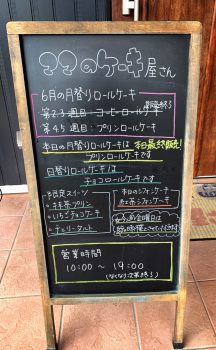 ??のケーキ屋さん
6月の月替りロールケーキ
第2.3週目:コーヒーロールケーキ
第4.5週目:プリンロールケーキ
本日の月替りロールケーキは本日最終販売!
プリンロールケーキです
日替りロールケーキは
チョコロールケーキです
・抹茶プリン
・いちごチョコケーキ
・チェリータルト
本日のシフォンケーキ
紅茶シフォンケーキ
営業時間
10:00 ~ 19:00
(なくなり次第終了)